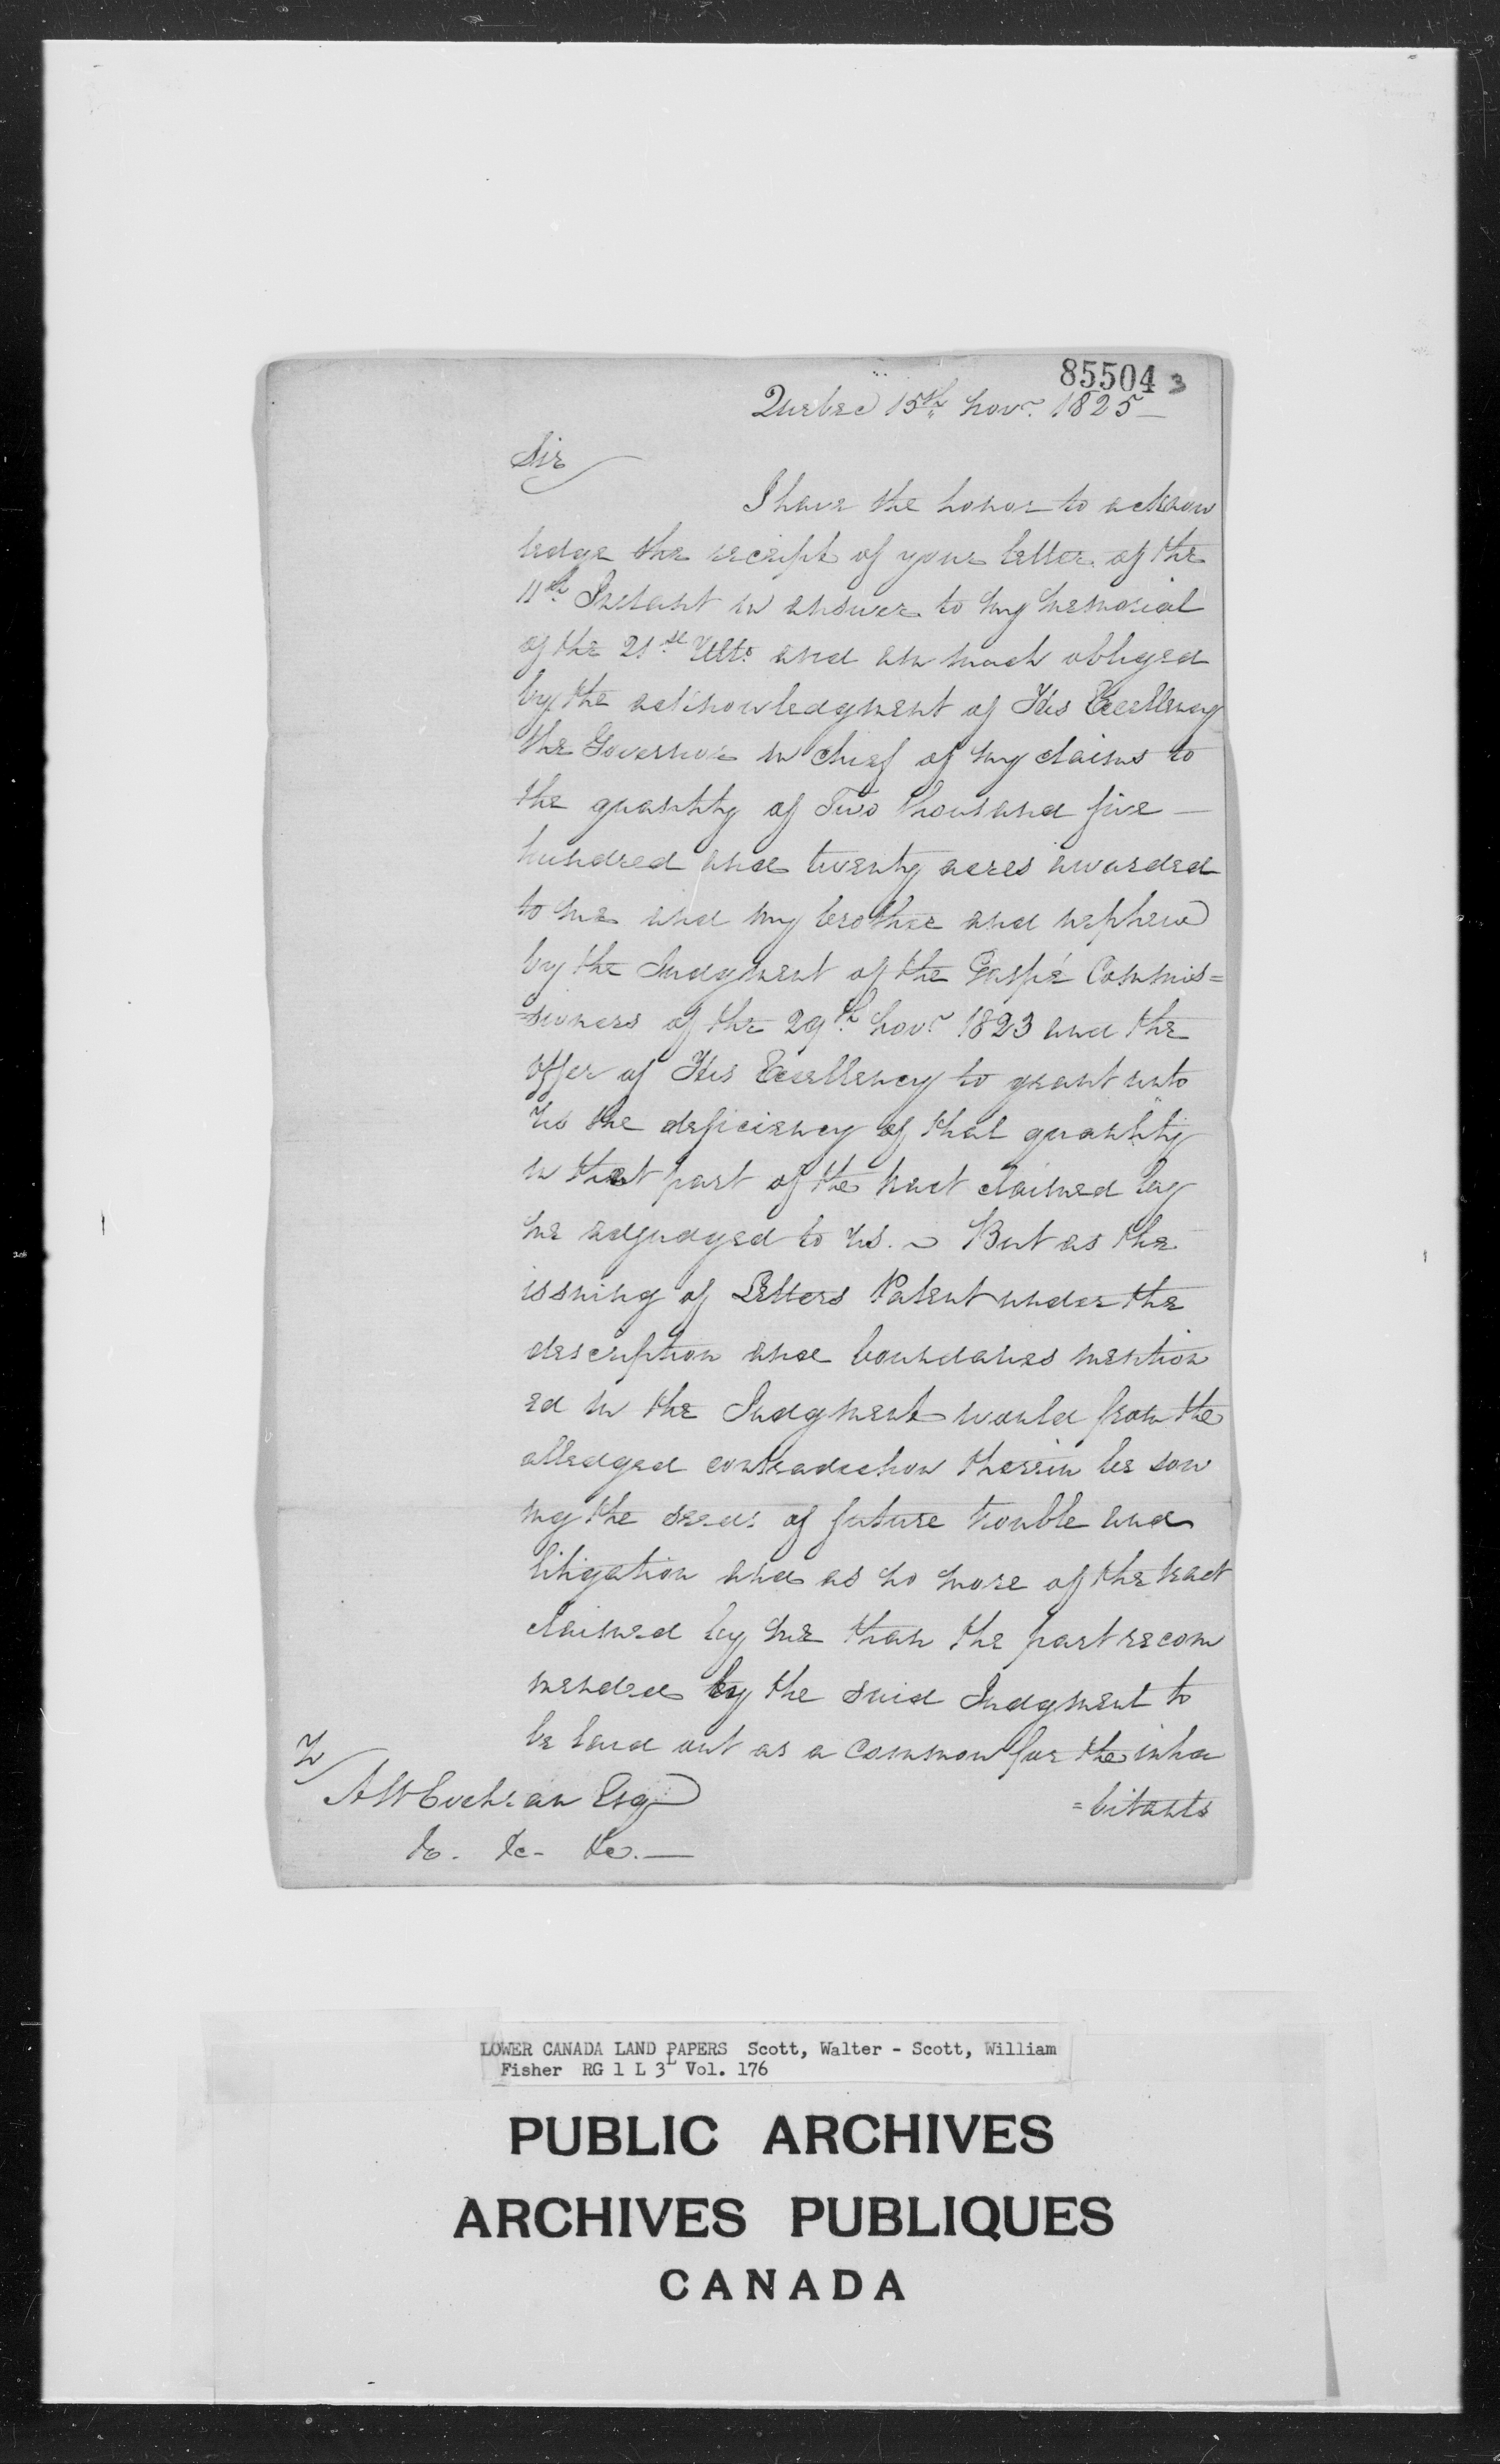 85504 3
Quebec 15th Novr. 1825
Sir
I have the honor to acknow
ledge the receipt of your letter of the
11th Instant in answer to my memorial
of the 21st Ulto. and am much obliged
by the acknowledgment of His Excellency
the Governor in chief of my claims to
the quantity of Two thousand five
hundred and twenty acres awarded
to me and my brother and nephew
by the Judgment of the Gaspé Commis=
=sioners of the 29th Novr. 1823 and the
offer of His Excellency to grant unto
us the deficiency of that quantity
in that part of the tract claimed by
me adjudged to us. ~ But as the
issuing of Letters Patent under the
description and boundaries mention
ed in the Judgment would from the
alledged contradiction therein be sow
ing the seeds of future trouble and
litigation and as no more of the tract
claimed by me than the part recom
mended by the said Judgment to
be laid out as a Common for the inha
=bitants
To
AW Cochran Esq
&c. &c. &c.
LOWER CANADA LAND PAPERS Scott, Walter - Scott, William
Fisher RG 1 L 3L Vol. 176
PUBLIC ARCHIVES
ARCHIVES PUBLIQUES
CANADA